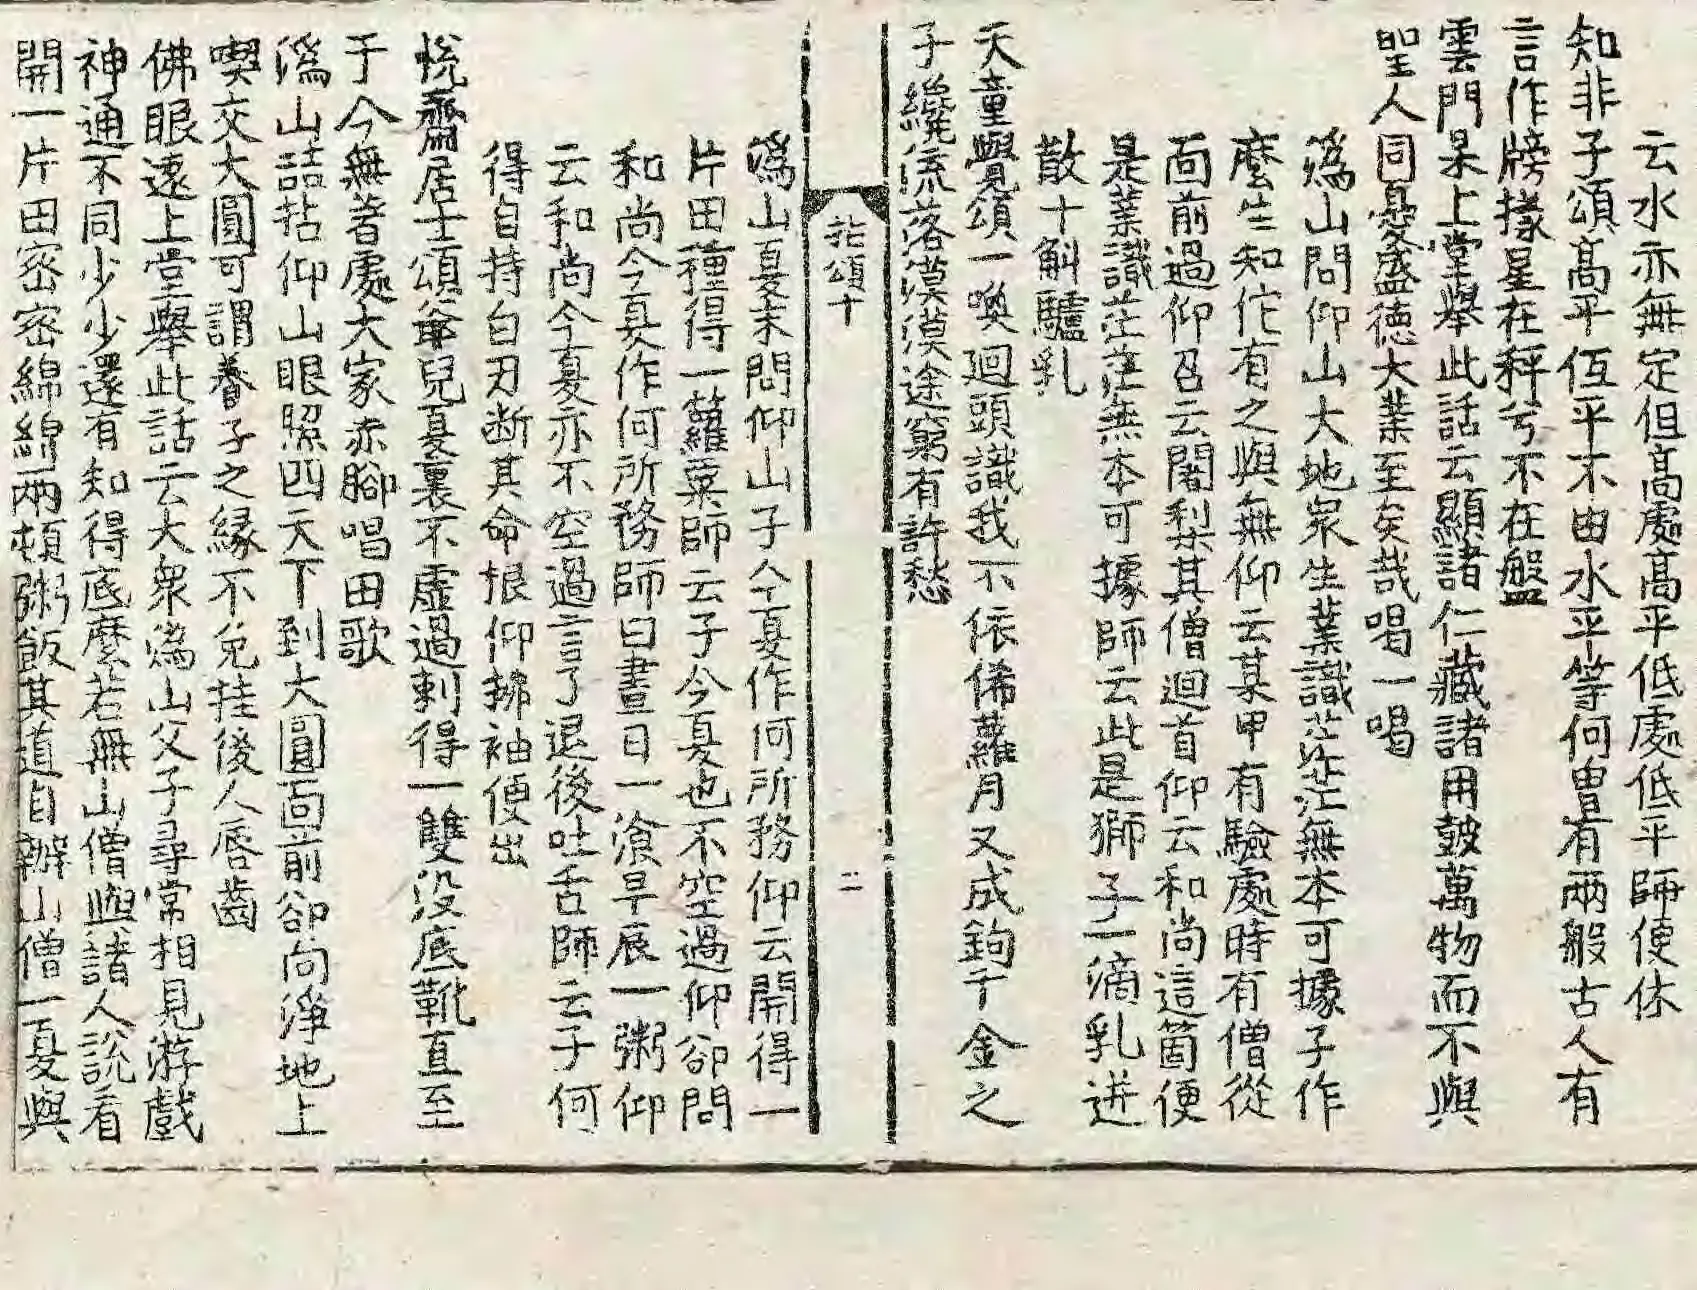 云水亦無定但高處高平低處低平師便休
知非子頌高平低平不由水平等何曽有兩般古人有
言作牓㨾星在秤兮不在盤
雲門杲上堂舉此話云顯諸仁藏諸用鼓萬物而不與
聖人同憂盛德大業至矣哉喝一喝
潙山問仰山大地衆生業識茫茫無本可據子作
麽生知佗有之與無仰云某甲有驗處時有僧從
面前過仰召云闍梨其僧迴首仰云和尚這箇便
是業識茫茫無本可據師云此是獅子一滴乳迸
散十斛驢乳
天童覺頌一喚迴頭識我不依俙蘿月又成鉤千金之
子纔流落漠漠途窮有許愁
拈頌十
二
潙山夏末問仰山子今夏作何所務仰云開得一
片田種得一籮粟師云子今夏也不空過仰卻問
和尚今夏作何所務師曰晝日一飡早辰一粥仰
云和尚今夏亦不空過言了退後吐舌師云子何
得自持白刃断其命根仰拂袖便出
悅齋居士頌爺兒夏裏不虛過剌得一雙没底靴直至
于今無著處大家赤脚唱田歌
潙山喆拈仰山眼照四天下到大圓面前卻向淨地上
喫交大圓可謂養子之縁不免挂後人唇齒
佛眼遠上堂舉此話云大衆潙山父子尋常相見游戲
神通不同少少還有知得底麽若無山僧與諸人說看
開一片田密密綿綿兩頓粥飯其道自辦山僧一夏與